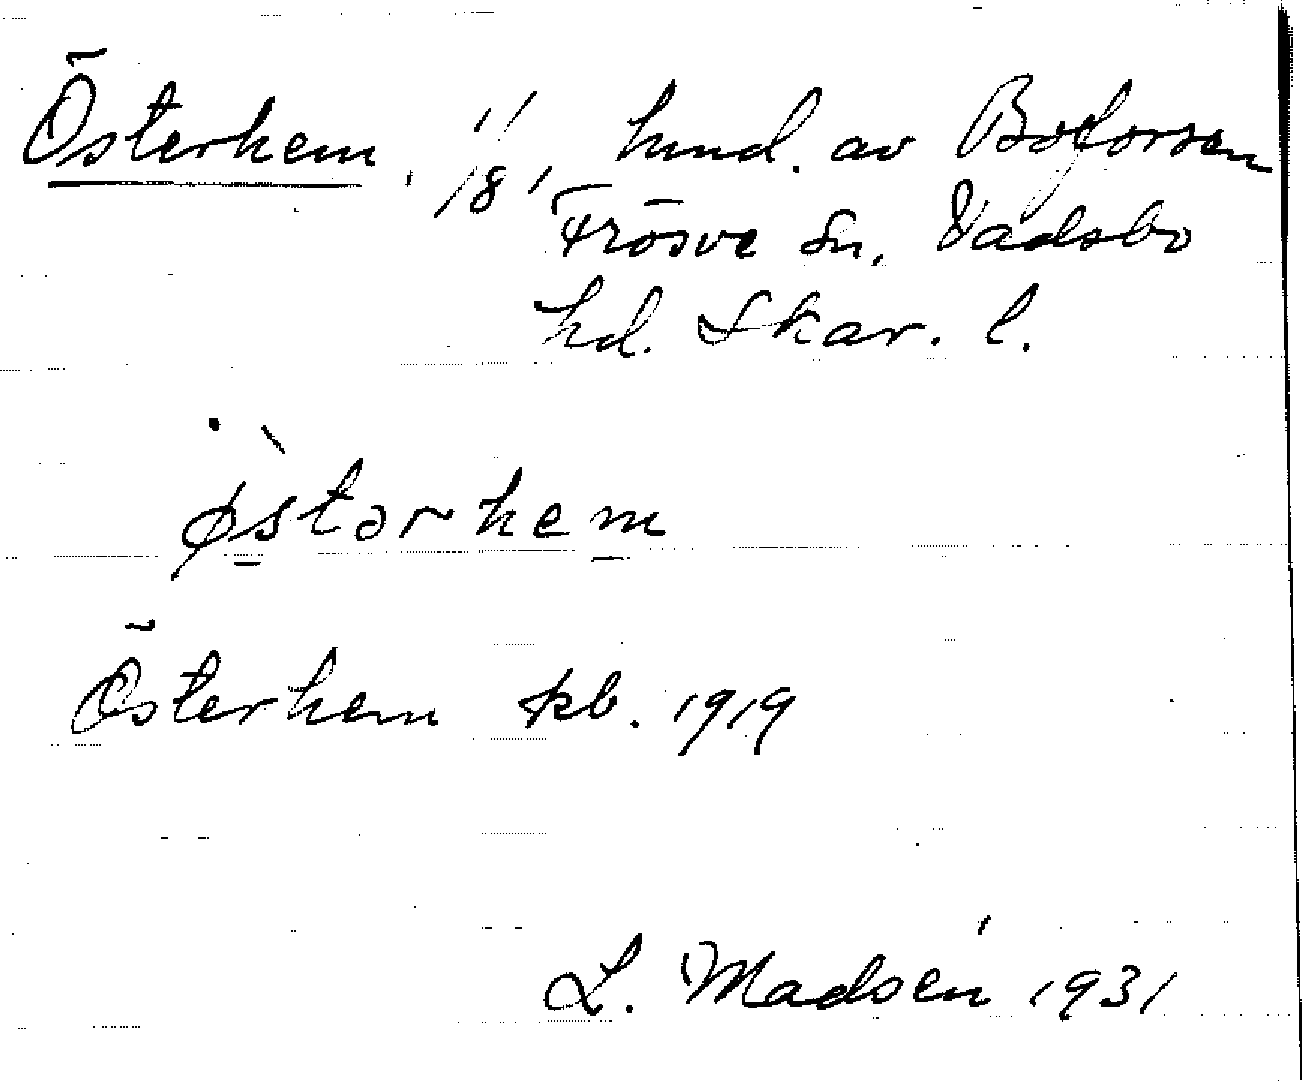 Österhem, 1/18, hmd. av Boforsen
Frösve Sn. Vadsbo
hd. Skar. l.
ø̀stərhem
Österhem kb. 1919
L. Madsén 1931